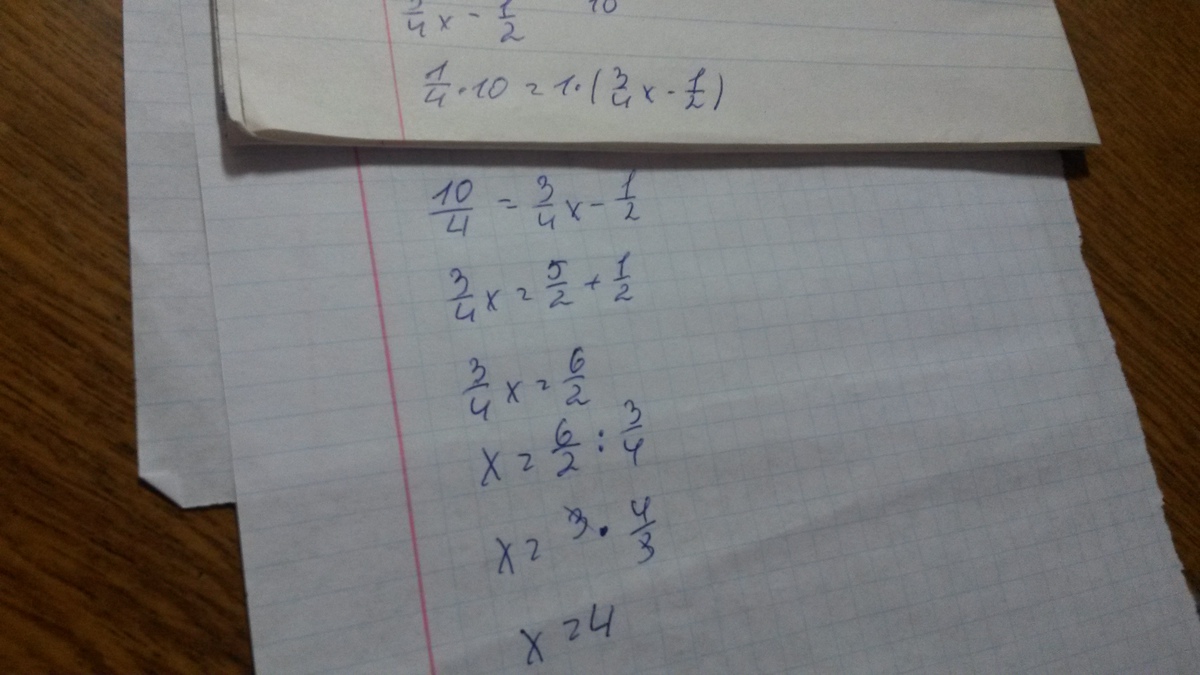 3/4 x - 1/2   10
1/4 · 10 = 1 · (3/4 x - 1/2)
10/4 = 3/4 x - 1/2
3/4 x = 5/2 + 1/2
3/4 x = 6/2
x = 6/2 : 3/4
x = 3 · 4/3
x = 4